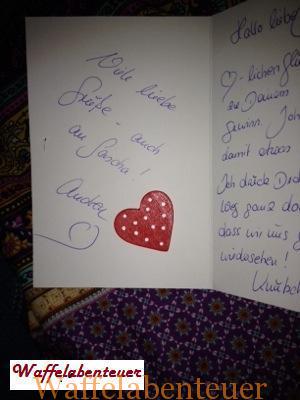 Viele liebe
Grüße - auch
an Sascha!
Andrea
Hallo liebe
♡-lichen Glü
zu Deinem
Gewinn. Ich
damit etwas
Ich drück Dich
ganz do
dass wir uns
wiedersehen!
Waffelabenteuer
Waffelabenteuer